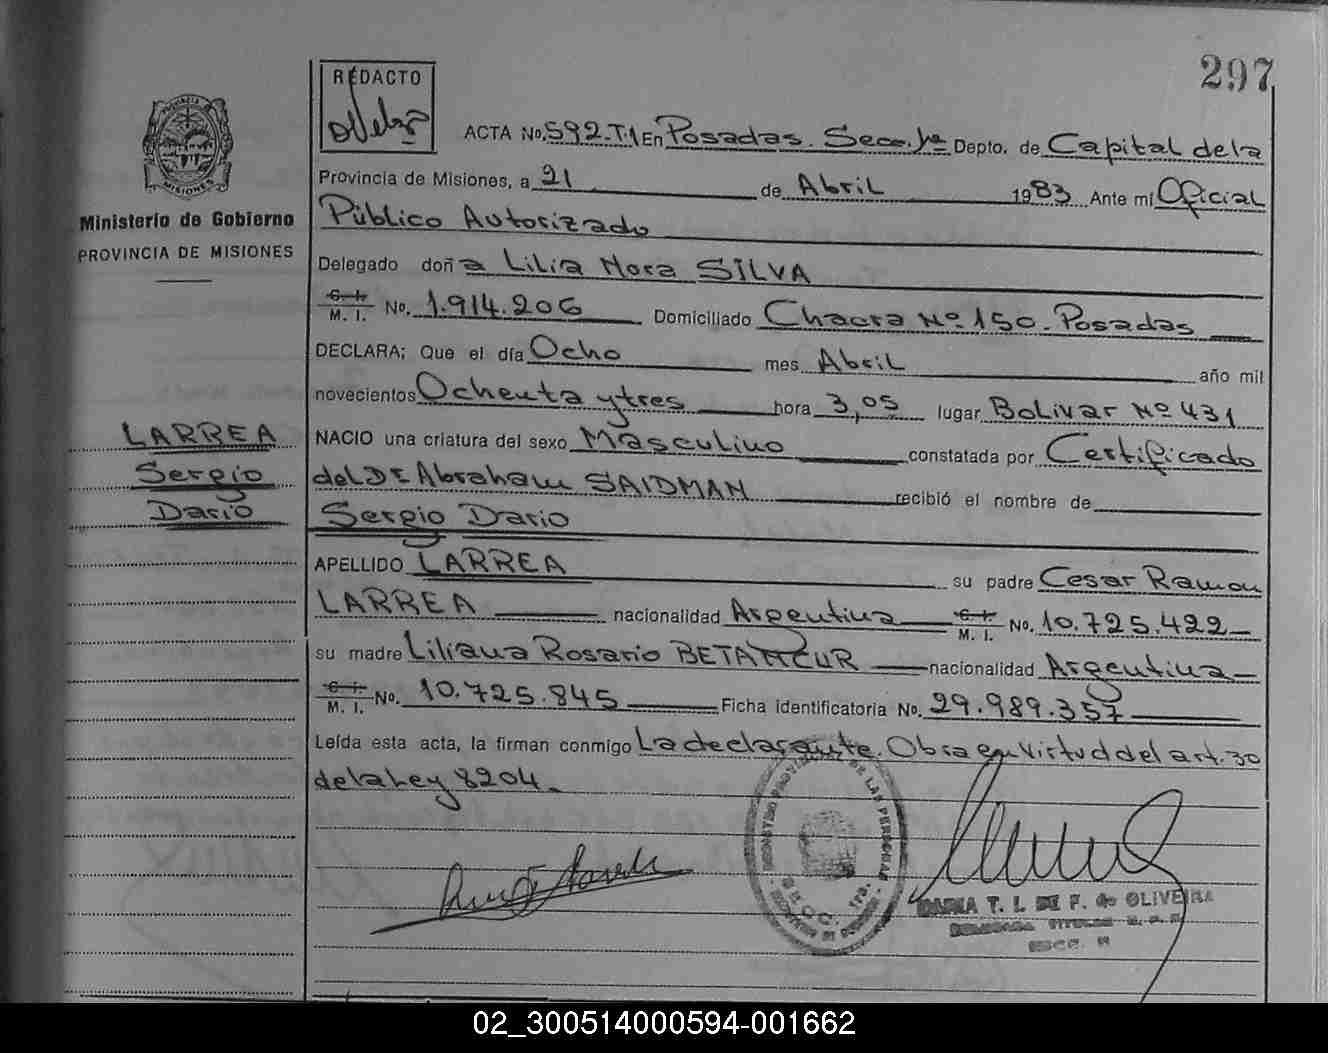 297
REDACTO
ACTA No. 592.T.1 En Posadas. Secc. 1ª Depto. de Capital de la
Provincia de Misiones, a 21 de Abril 1983 Ante mí Oficial
Público Autorizado
Delegado doña Lilia Nora SILVA
C. I.
M. I. No. 1.914.206 Domiciliado Chacra Nº 150 - Posadas
DECLARA; Que el día Ocho mes Abril año mil
novecientos Ochenta y tres hora 3,05 lugar Bolivar Nº 431
NACIO una criatura del sexo Masculino constatada por Certificado
del Dr Abraham SAIDMAN recibió el nombre de
Sergio Dario
APELLIDO LARREA su padre Cesar Ramon
LARREA nacionalidad Argentina C. I. M. I. No. 10.725.422
su madre Liliana Rosario BETANCUR nacionalidad Argentina
C. I.
M. I. No. 10.725.845 Ficha identificatoria No. 29.989.357
Leída esta acta, la firman conmigo La declarante. Obra en virtud del art. 30
de la Ley 8204.
PROVINCIA DE
MISIONES
Ministerio de Gobierno
PROVINCIA DE MISIONES
LARREA
Sergio
Dario
REGISTRO PROVINCIAL DE LAS PERSONAS
SECC. 1ra.
MARIA T. I. DE F. de OLIVEIRA
DELEGADA TITULAR R. P. P.
02_300514000594-001662